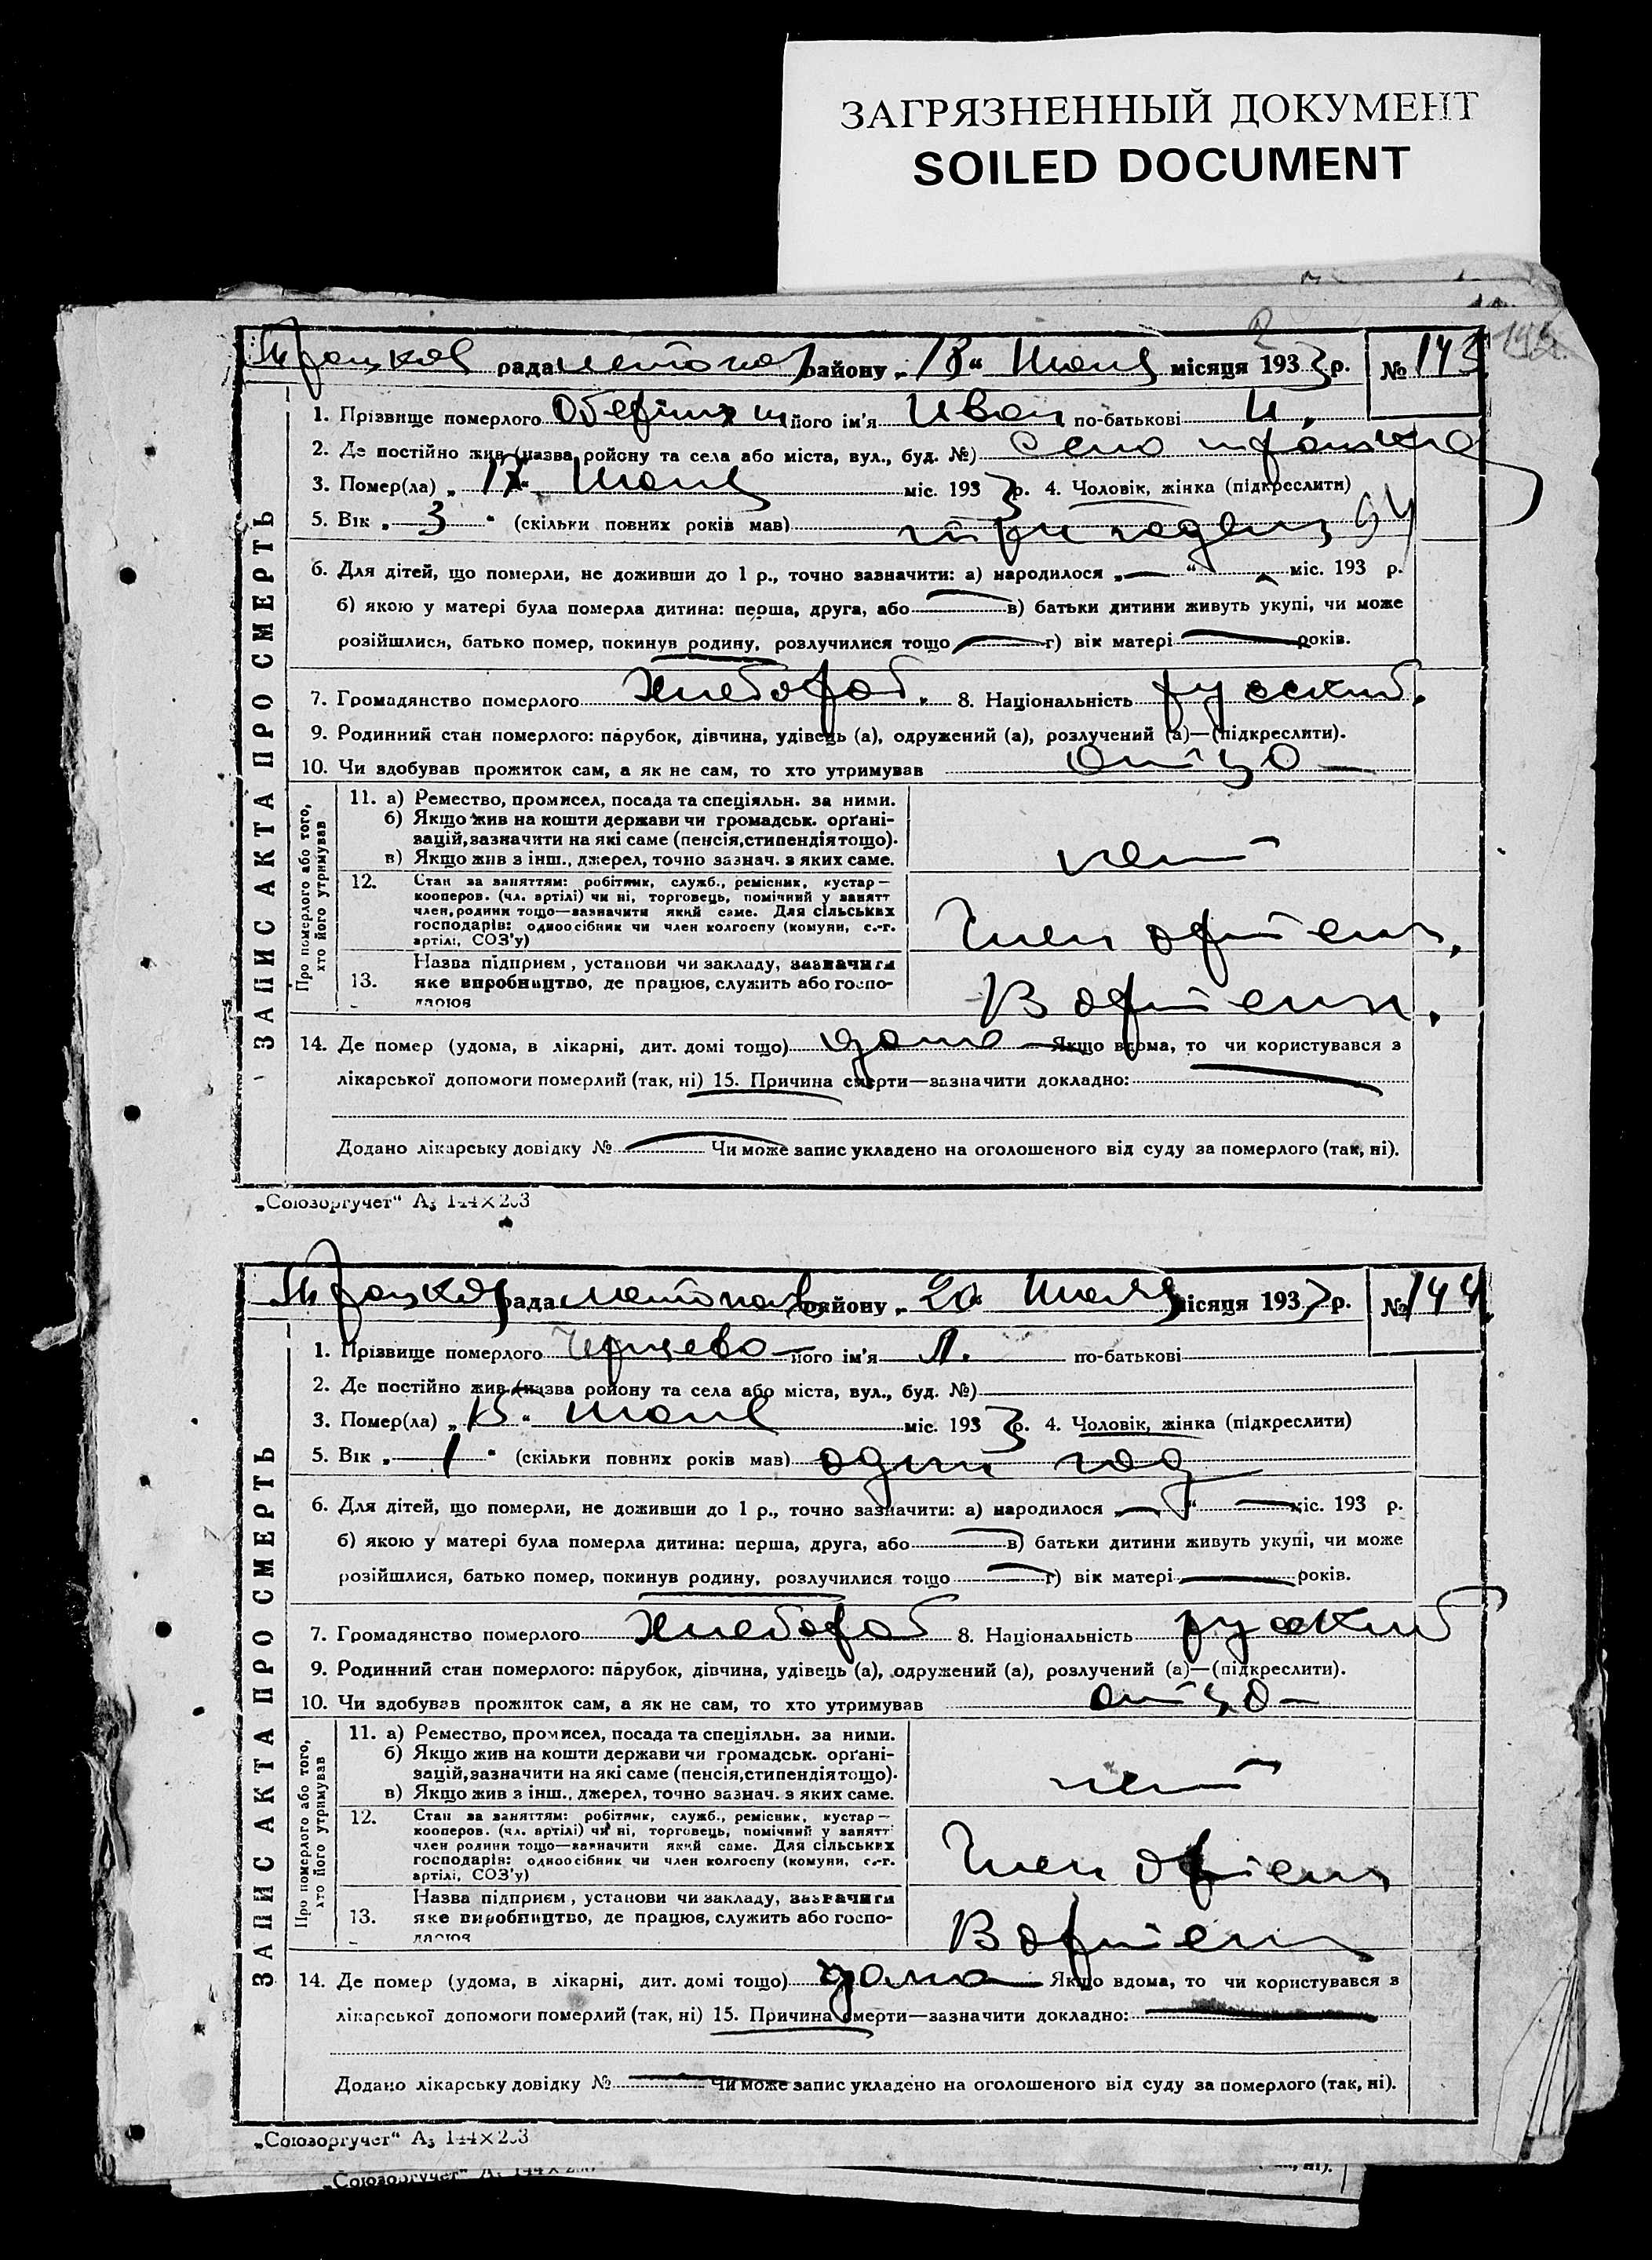 ЗАГРЯЗНЕННЫЙ ДОКУМЕНТ
SOILED DOCUMENT
рада району „18“ місяця 1933 р. № 143
1. Прізвище померлого його ім'я Иван по-батькові И.
2. Де постійно жив (назва ройону та села або міста, вул., буд. №) село
3. Помер(ла) „17“ міс. 1933 р. 4. Чоловік, жінка (підкреслити)
5. Вік „3“ (скільки повних років мав) три
6. Для дітей, що померли, не доживши до 1 р., точно зазначити: а) народилося „—“ міс. 193 р.
б) якою у матері була померла дитина: перша, друга, або — в) батьки дитини живуть укупі, чи може
розійшлися, батько помер, покинув родину, розлучилися тощо — г) вік матері — років.
7. Громадянство померлого хлебороб. 8. Національність русский.
9. Родинний стан померлого: парубок, дівчина, удівець (а), одружений (а), розлучений (а)—(підкреслити).
10. Чи здобував прожиток сам, а як не сам, то хто утримував отцо—
11. а) Ремество, промисел, посада та спеціяльн. за ними.
б) Якщо жив на кошти держави чи громадськ. орґані-
зацій, зазначити на які саме (пенсія, стипендія тощо).
в) Якщо жив з інш., джерел, точно зазнач. з яких саме.
нет
12. Стан за заняттям: робітник, служб., ремісник, кустар—
кооперов. (чл. артілі) чи ні, торговець, помічний у занятт
член, родини тощо—зазначити який саме. Для сільських
господарів: одноосібник чи член колгоспу (комуни, с.-г.
артілі, СОЗ'у)
Член артели,
13. Назва підприєм, установи чи закладу, зазначити
яке виробництво, де працюв, служить або госпо-
дарюв
В артели.
14. Де помер (удома, в лікарні, дит. домі тощо) дома Якщо вдома, то чи користувався з
лікарської допомоги померлий (так, ні) 15. Причина смерти—зазначити докладно:
Додано лікарську довідку № — Чи може запис укладено на оголошеного від суду за померлого (так, ні).
ЗАПИС АКТА ПРО СМЕРТЬ
Про померлого або того,
хто його утримував
„Союзоргучет“ А₅ 144×203
рада району „20“ місяця 1933 р. № 144
1. Прізвище померлого його ім'я Л. по-батькові
2. Де постійно жив (назва ройону та села або міста, вул., буд. №)
3. Помер(ла) „15“ міс. 1933 р. 4. Чоловік, жінка (підкреслити)
5. Вік „1“ (скільки повних років мав) один год
6. Для дітей, що померли, не доживши до 1 р., точно зазначити: а) народилося „—“ — міс. 193 р.
б) якою у матері була померла дитина: перша, друга, або — в) батьки дитини живуть укупі, чи може
розійшлися, батько помер, покинув родину, розлучилися тощо — г) вік матері — років.
7. Громадянство померлого хлебороб 8. Національність русский
9. Родинний стан померлого: парубок, дівчина, удівець (а), одружений (а), розлучений (а)—(підкреслити).
10. Чи здобував прожиток сам, а як не сам, то хто утримував отцо—
11. а) Ремество, промисел, посада та спеціяльн. за ними.
б) Якщо жив на кошти держави чи громадськ. орґані-
зацій, зазначити на які саме (пенсія, стипендія тощо).
в) Якщо жив з інш., джерел, точно зазнач. з яких саме.
нет
12. Стан за заняттям: робітник, служб., ремісник, кустар—
кооперов. (чл. артілі) чи ні, торговець, помічний у занятт
член родини тощо—зазначити який саме. Для сільських
господарів: одноосібник чи член колгоспу (комуни, с.-г.
артілі, СОЗ'у)
Член артели
13. Назва підприєм, установи чи закладу, зазначити
яке виробництво, де працюв, служить або госпо-
дарюв
В артели
14. Де помер (удома, в лікарні, дит. домі тощо) дома Якщо вдома, то чи користувався з
лікарської допомоги померлий (так, ні) 15. Причина смерти—зазначити докладно:
Додано лікарську довідку № — Чи може запис укладено на оголошеного від суду за померлого (так, ні).
ЗАПИС АКТА ПРО СМЕРТЬ
Про померлого або того,
хто його утримував
„Союзоргучет“ А₅ 144×203
„Союзоргучет“